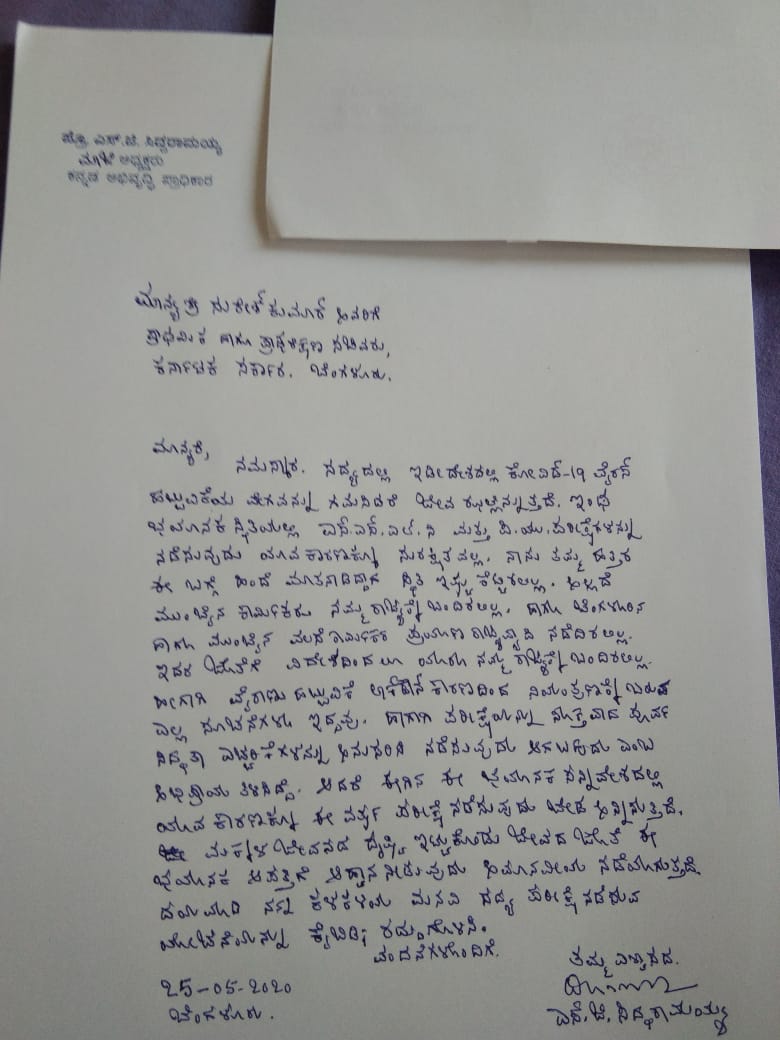 ಪ್ರೊ. ಎಸ್.ಜಿ. ಸಿದ್ದರಾಮಯ್ಯ
ಮಾಜಿ ಅಧ್ಯಕ್ಷರು
ಕನ್ನಡ ಅಭಿವೃದ್ಧಿ ಪ್ರಾಧಿಕಾರ
ಮಾನ್ಯ ಶ್ರೀ ಸುರೇಶ್ ಕುಮಾರ್ ಇವರಿಗೆ
ಪ್ರಾಥಮಿಕ ಹಾಗೂ ಪ್ರೌಢಶಿಕ್ಷಣ ಸಚಿವರು,
ಕರ್ನಾಟಕ ಸರ್ಕಾರ. ಬೆಂಗಳೂರು.
ಮಾನ್ಯರೆ,
ನಮಸ್ಕಾರ. ಸದ್ಯದಲ್ಲಿ ಇಡೀದೇಶದಲ್ಲಿ ಕೋವಿಡ್-19 ವೈರಸ್
ಹಬ್ಬುವಿಕೆಯ ವೇಗವನ್ನು ಗಮನಿಸಿದರೆ ಜೀವ ಝಲ್ಲೆನ್ನುತ್ತದೆ. ಇಂಥ
ಭಯಾನಕ ಸ್ಥಿತಿಯಲ್ಲಿ ಎಸ್.ಎಸ್.ಎಲ್.ಸಿ ಮತ್ತು ಪಿ.ಯು. ಪರೀಕ್ಷೆಗಳನ್ನು
ನಡೆಸುವುದು ಯಾವ ಕಾರಣಕ್ಕೂ ಸುರಕ್ಷಿತವಲ್ಲ. ನಾನು ತಮ್ಮ ಹತ್ತಿರ
ಈ ಬಗ್ಗೆ ಹಿಂದೆ ಮಾತನಾಡಿದ್ದಾಗ ಸ್ಥಿತಿ ಇಷ್ಟು ಕೆಟ್ಟಿರಲಿಲ್ಲ. ಅಲ್ಲದೆ
ಮುಂಬೈನ ಕಾರ್ಮಿಕರು ನಮ್ಮ ರಾಜ್ಯಕ್ಕೆ ಬಂದಿರಲಿಲ್ಲ. ಹಾಗೂ ಬೆಂಗಳೂರಿನ
ಹಾಗೂ ಮುಂಬೈನ ವಲಸೆ ಕಾರ್ಮಿಕರ ಪ್ರಯಾಣ ರಾಜ್ಯವ್ಯಾಪಿ ನಡೆದಿರಲಿಲ್ಲ.
ಇದರ ಜೊತೆಗೆ ವಿದೇಶದಿಂದಲೂ ಯಾರೂ ನಮ್ಮ ರಾಜ್ಯಕ್ಕೆ ಬಂದಿರಲಿಲ್ಲ.
ಹೀಗಾಗಿ ವೈರಾಣು ಹಬ್ಬುವಿಕೆ ಲಾಕ್‌ಡೌನ್ ಕಾರಣದಿಂದ ನಿಯಂತ್ರಣಕ್ಕೆ ಬರುವ
ಎಲ್ಲ ಸೂಚನೆಗಳೂ ಇದ್ದವು. ಹಾಗಾಗಿ ಪರೀಕ್ಷೆಯನ್ನು ಸೂಕ್ತವಾದ ಪೂರ್ವ
ಸಿದ್ಧತಾ ಎಚ್ಚರಿಕೆಗಳನ್ನು ಅನುಸರಿಸಿ ನಡೆಸುವುದು ಆಗಬಹುದು ಎಂಬ
ಅಭಿಪ್ರಾಯ ತಿಳಿಸಿದ್ದೆ. ಆದರೆ ಈಗಿನ ಈ ಭಯಾನಕ ಸನ್ನಿವೇಶದಲ್ಲಿ
ಯಾವ ಕಾರಣಕ್ಕೂ ಈ ವರ್ಷ ಪರೀಕ್ಷೆ ನಡೆಸುವುದು ಬೇಡ ಅನ್ನಿಸುತ್ತದೆ.
ಮಕ್ಕಳ ಜೀವನದ ದೃಷ್ಟಿ ಇಟ್ಟುಕೊಂಡು ಜೀವದ ಜೊತೆ ಈ
ಭಯಾನಕ ಆಪತ್ತಿಗೆ ಆಹ್ವಾನ ನೀಡುವುದು ಅಮಾನವೀಯ ನಡೆಯಾಗುತ್ತದೆ.
ದಯಮಾಡಿ ನನ್ನ ಕಳಕಳಿಯ ಮನವಿ ಸದ್ಯ ಪರೀಕ್ಷೆ ನಡೆಸುವ
ಯೋಚನೆಯನ್ನು ಕೈಬಿಡಿ; ರದ್ದುಗೊಳಿಸಿ.
ವಂದನೆಗಳೊಂದಿಗೆ.
ತಮ್ಮ ವಿಶ್ವಾಸದ.
25-05-2020
ಬೆಂಗಳೂರು.
ಎಸ್. ಜಿ. ಸಿದ್ದರಾಮಯ್ಯ